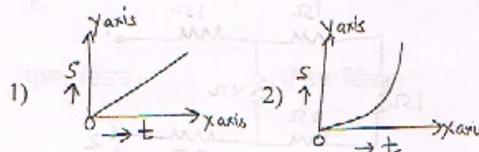 1) y axis S ↑ O → t x axis
2) y axis S ↑ O → t x axis